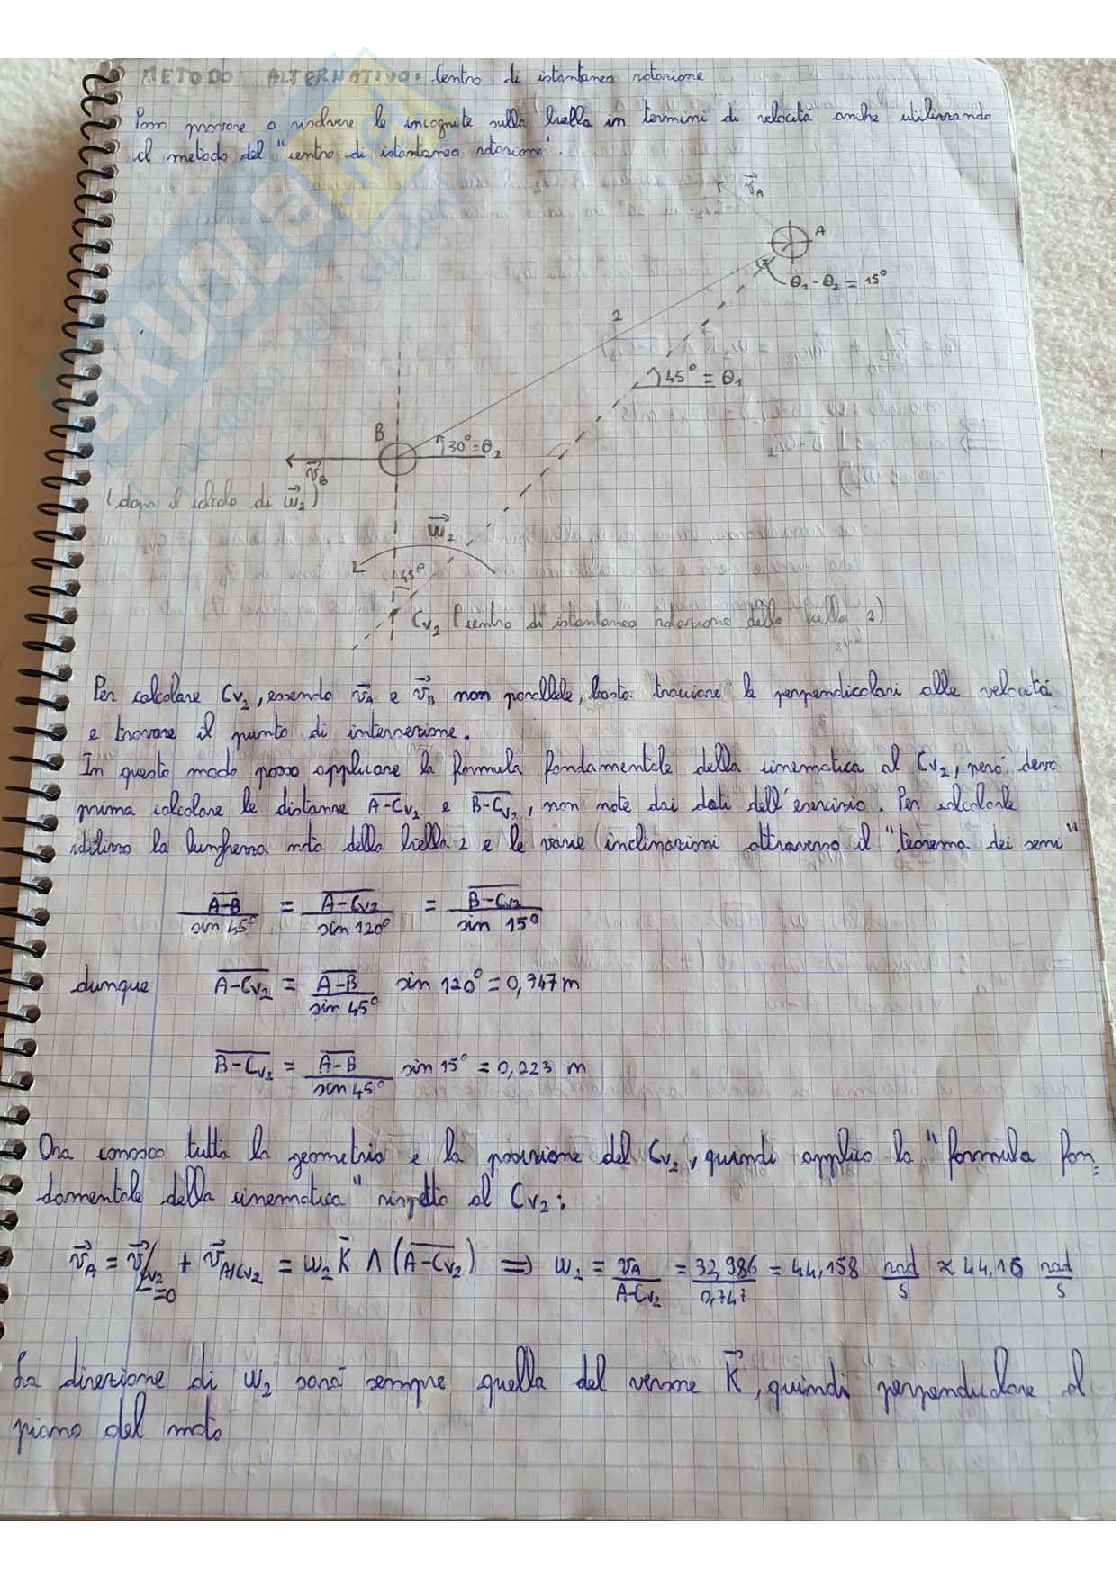 METODO ALTERNATIVO: Centro di istantanea rotazione
Posso provare a risolvere le incognite sulla biella in termini di velocità anche utilizzando
il metodo del "centro di istantanea rotazione".
SKUOLA
v⃗A
A
θ1 - θ2 = 15°
2
45° = θ1
B
30° = θ2
v⃗B
(dopo il calcolo di w⃗2)
w⃗2
45°
Cv2 (centro di istantanea rotazione della biella 2)
Per calcolare Cv2, essendo v⃗A e v⃗B non parallele, basta tracciare le perpendicolari alle velocità
e trovare il punto di intersezione.
In questo modo posso applicare la formula fondamentale della cinematica al Cv2, però devo
prima calcolare le distanze A-Cv2 e B-Cv2, non note dai dati dell'esercizio. Per calcolarle
utilizzo la lunghezza nota della biella 2 e le varie inclinazioni attraverso il "teorema dei seni"
A-B / sin 45° = A-Cv2 / sin 120° = B-Cv2 / sin 15°
dunque A-Cv2 = A-B / sin 45° sin 120° = 0,747 m
B-Cv2 = A-B / sin 45° sin 15° = 0,223 m
Ora conosco tutta la geometria e la posizione del Cv2, quindi applico la "formula fon=
damentale della cinematica" rispetto al Cv2:
v⃗A = v⃗Cv2 + v⃗A/Cv2 = w2 K⃗ ∧ (A-Cv2) ⇒ w2 = vA / A-Cv2 = 32,986 / 0,747 = 44,158 rad/s ≈ 44,16 rad/s
=0
La direzione di w2 sarà sempre quella del versore K⃗, quindi perpendicolare al
piano del moto